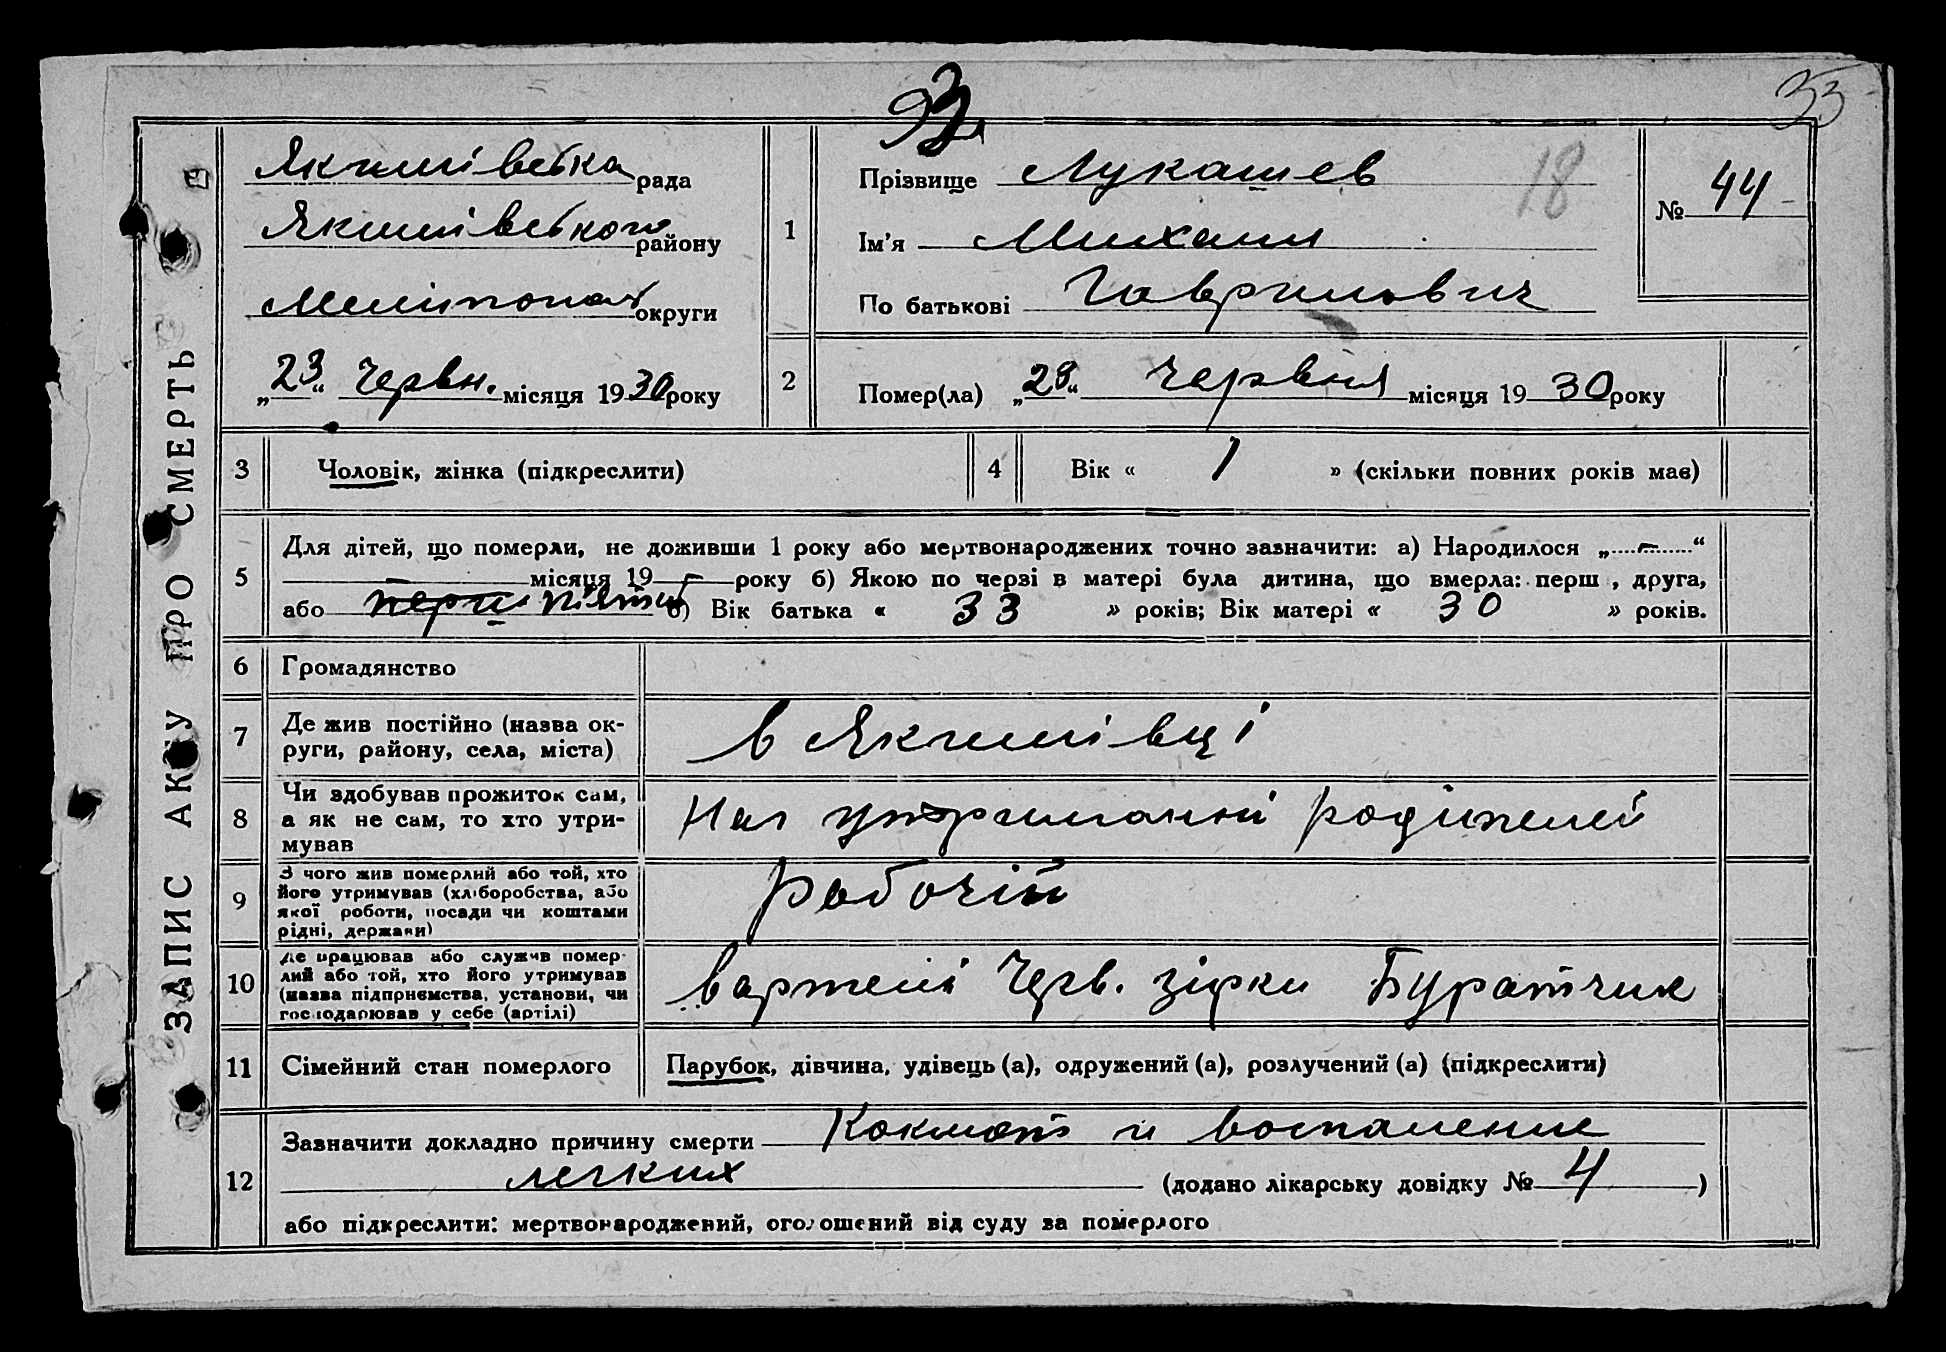 33
18
ЗАПИС АКТУ ПРО СМЕРТЬ
Якимівська рада
Якимівського району
Мелітопол округи
„23“ Червн. місяця 1930 року
1
Прізвище Лукашев
Ім'я Михаил
По батькові Гаврилович
№ 44
2
Помер(ла) „23“ Червня місяця 1930 року
3 Чоловік, жінка (підкреслити)
4 Вік « 1 » (скільки повних років має)
5 Для дітей, що померли, не доживши 1 року або мертвонароджених точно зазначити: а) Народилося „ – “
– місяця 19 – року б) Якою по черзі в матері була дитина, що вмерла: перш , друга,
або перш пʼята б) Вік батька « 33 » років; Вік матері « 30 » років.
6 Громадянство
7 Де жив постійно (назва ок-
руги, району, села, міста)
в Якимівці
8 Чи здобував прожиток сам,
а як не сам, то хто утри-
мував
На утриманні родителей
9 З чого жив померлий або той, хто
його утримував (хліборобства, або
якої роботи, посади чи коштами
рідні, держави)
рабочій
10 Де працював або служив помер-
лий або той, хто його утримував
(назва підприємства, установи, чи
господарював у себе (артілі)
в артелі Черв. зірки Буратчик
11 Сімейний стан померлого
Парубок, дівчина, удівець (а), одружений (а), розлучений (а) (підкреслити)
12 Зазначити докладно причину смерти Коклюш и воспаление
легких (додано лікарську довідку № 4 )
або підкреслити: мертвонароджений, оголошений від суду за померлого